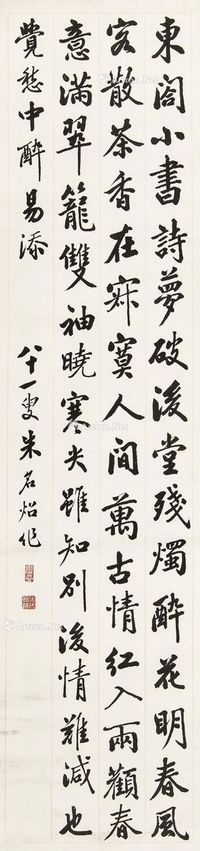 東閣小書詩夢破後堂殘燭醉花明春風
客散茶香在寂寞人間萬古情紅入兩顴春
意滿翠籠雙袖曉寒尖雖知別後情難減也
覺愁中醉易添
八十一叟朱名炤作